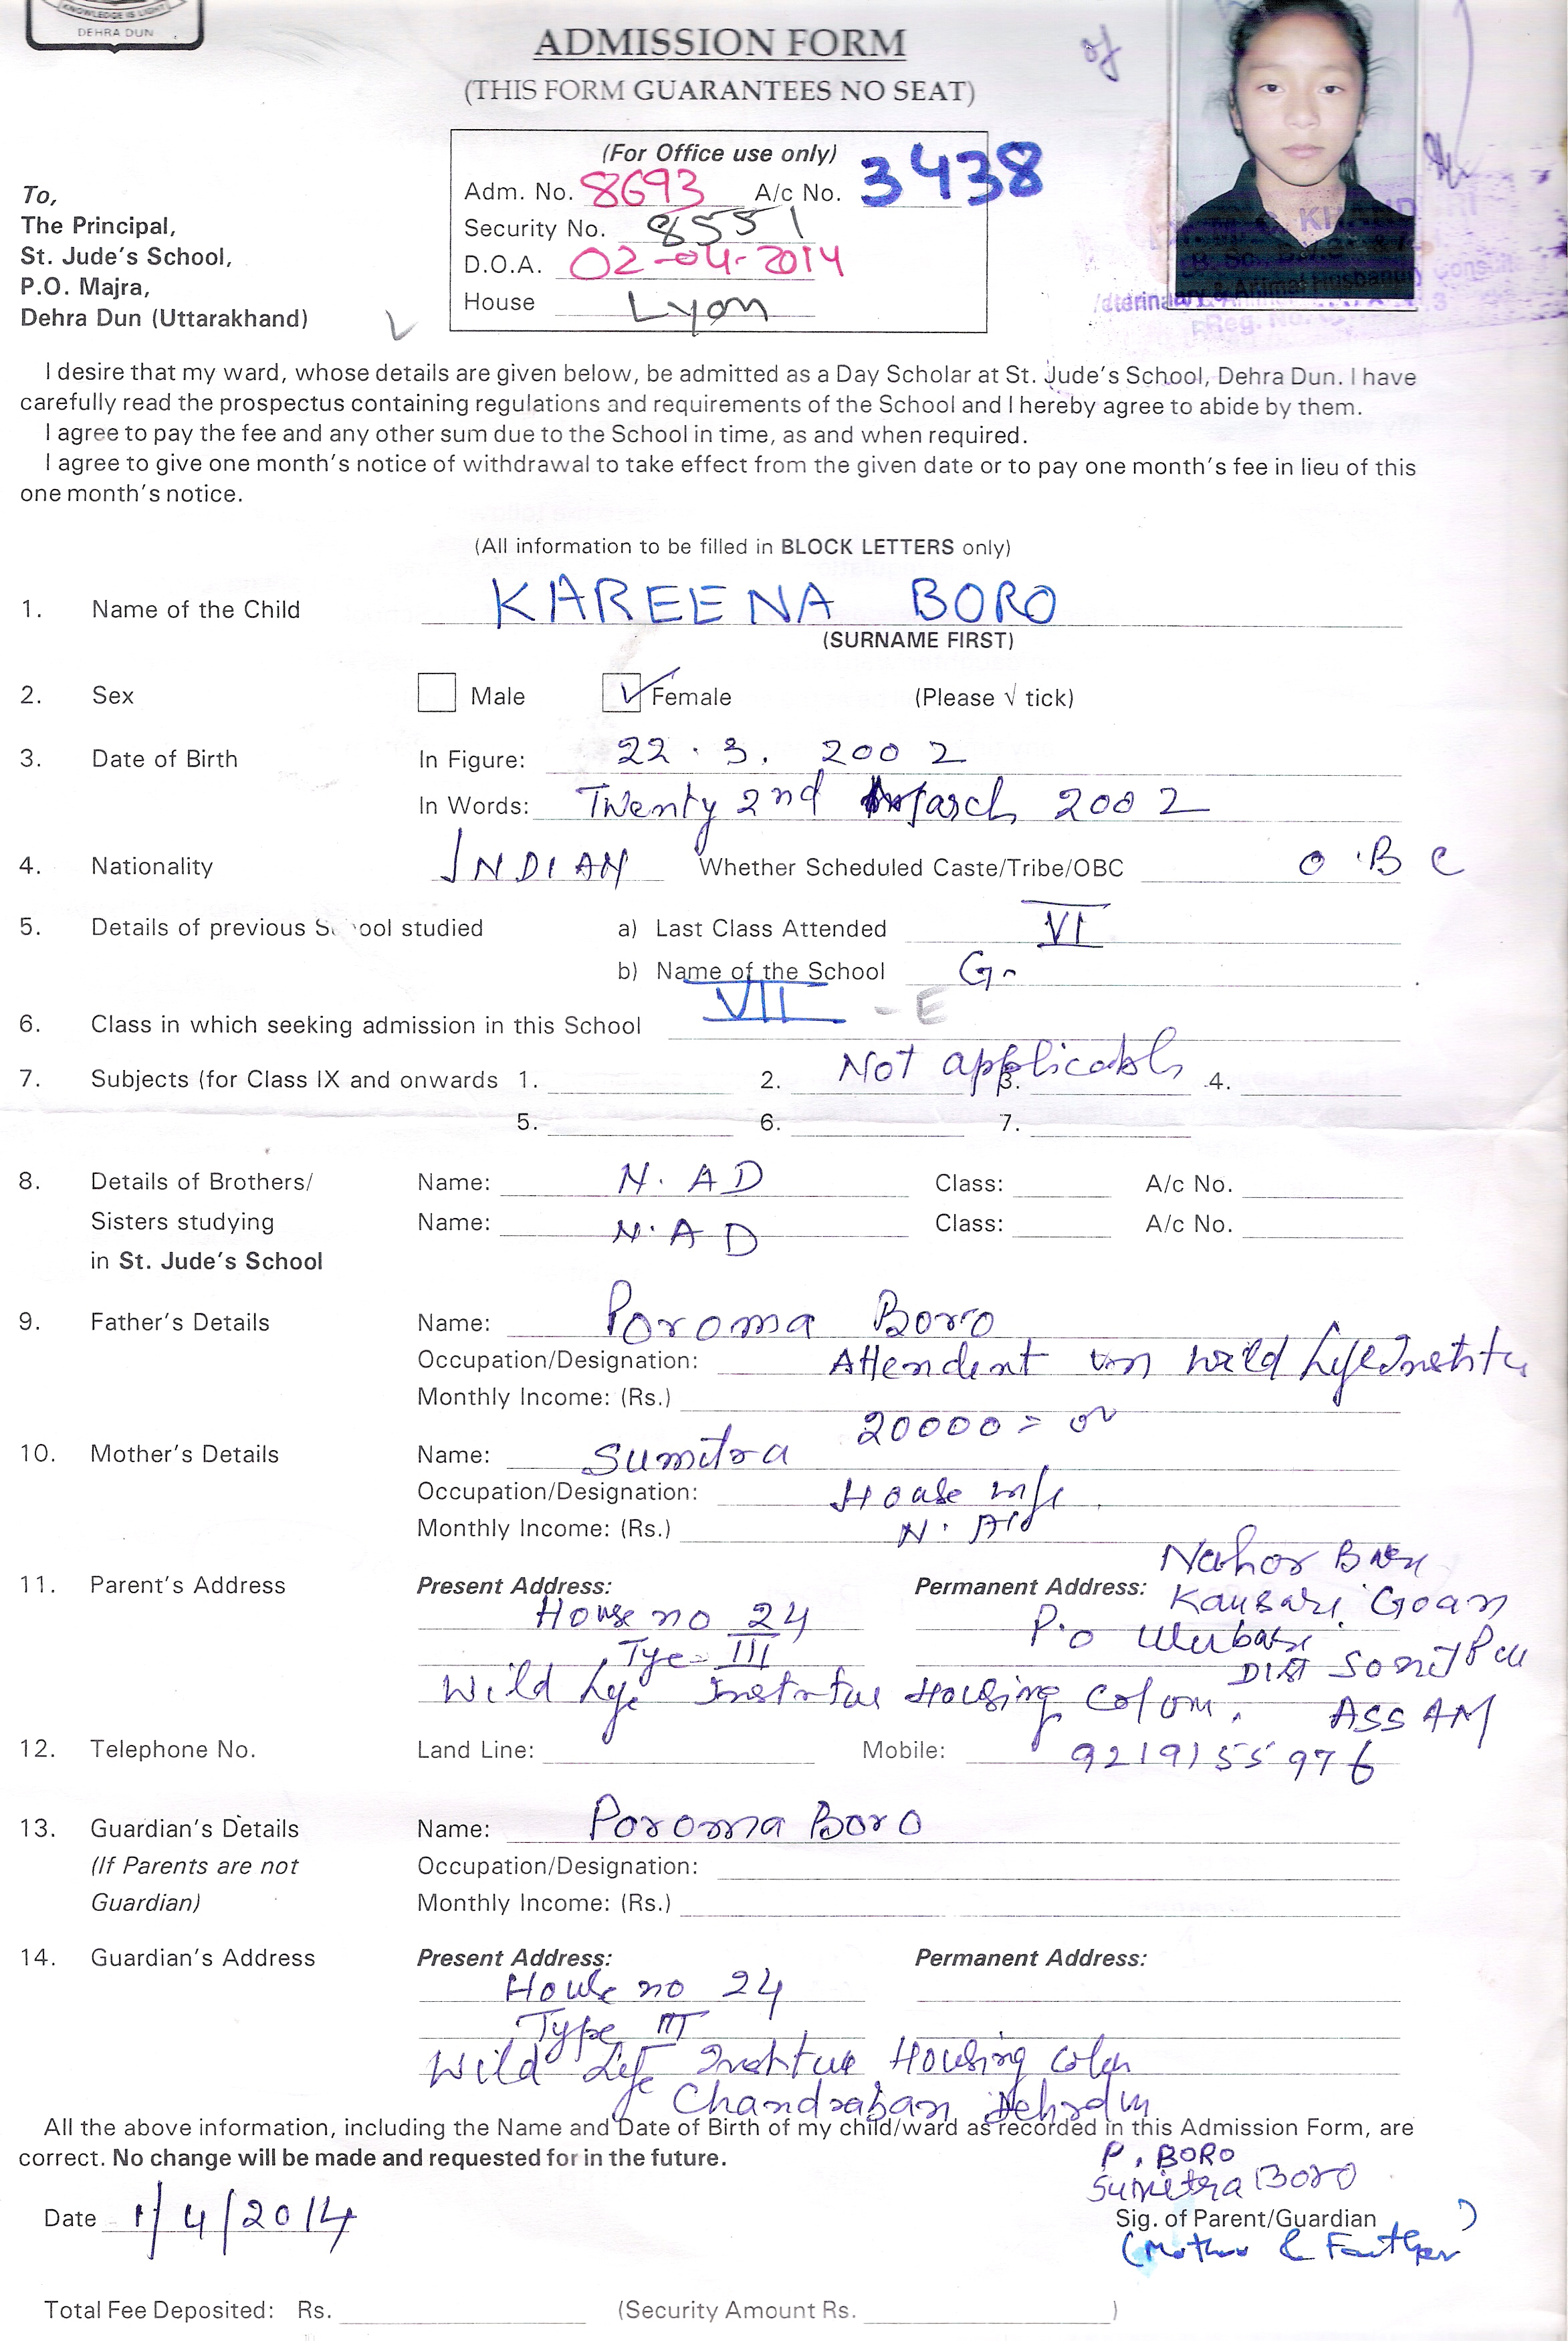 KNOWLEDGE IS LIGHT
DEHRA DUN
ADMISSION FORM
(THIS FORM GUARANTEES NO SEAT)
of
(For Office use only)
Adm. No. 8693 A/c No. 3438
Security No. 8551
D.O.A. 02-04-2014
House Lyon
To,
The Principal,
St. Jude's School,
P.O. Majra,
Dehra Dun (Uttarakhand)
I desire that my ward, whose details are given below, be admitted as a Day Scholar at St. Jude's School, Dehra Dun. I have
carefully read the prospectus containing regulations and requirements of the School and I hereby agree to abide by them.
I agree to pay the fee and any other sum due to the School in time, as and when required.
I agree to give one month's notice of withdrawal to take effect from the given date or to pay one month's fee in lieu of this
one month's notice.
(All information to be filled in BLOCK LETTERS only)
1. Name of the Child KAREENA BORO
(SURNAME FIRST)
2. Sex Male Female (Please √ tick)
3. Date of Birth In Figure: 22.3.2002
In Words: Twenty 2nd March 2002
4. Nationality INDIAN Whether Scheduled Caste/Tribe/OBC O.B C
5. Details of previous School studied a) Last Class Attended VI
b) Name of the School G-
6. Class in which seeking admission in this School VII - E
7. Subjects (for Class IX and onwards 1. 2. Not applicable 3. 4.
5. 6. 7.
8. Details of Brothers/ Name: N. AD Class: A/c No.
Sisters studying Name: N. AD Class: A/c No.
in St. Jude's School
9. Father's Details Name: Poroma Boro
Occupation/Designation: Attendent in wild Life
Monthly Income: (Rs.) 20000 =
10. Mother's Details Name: Sumitra
Occupation/Designation: House wife
Monthly Income: (Rs.)
11. Parent's Address Present Address: Permanent Address: Nahor
House no 24 P.o
Type III DIST
Wild Life Housing ASSAM
12. Telephone No. Land Line: Mobile: 9219155976
13. Guardian's Details Name: Poroma Boro
(If Parents are not Occupation/Designation:
Guardian) Monthly Income: (Rs.)
14. Guardian's Address Present Address: Permanent Address:
House no 24
Type III
Wild Life Housing
All the above information, including the Name and Date of Birth of my child/ward as recorded in this Admission Form, are
correct. No change will be made and requested for in the future.
P. BORO
Sumitra Boro
Date 1/4/2014 Sig. of Parent/Guardian
(Mother & Father)
Total Fee Deposited: Rs. (Security Amount Rs. )